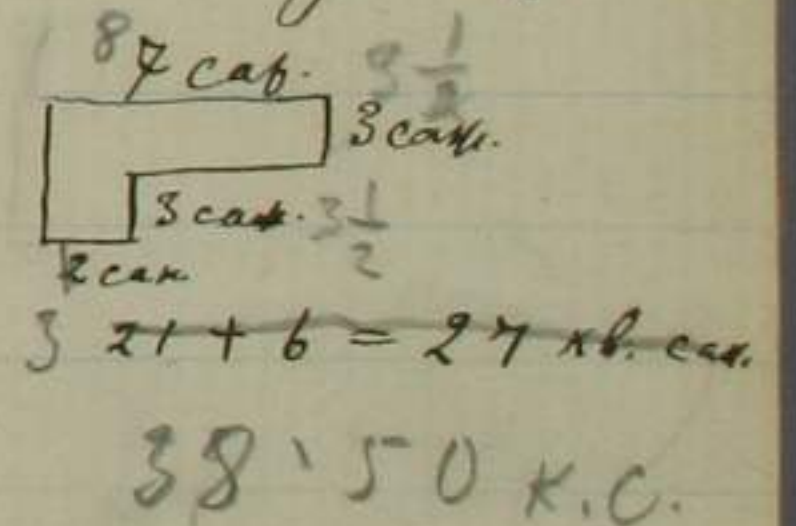 8 7 саж. 3 1/2
3 саж.
3 саж. 3 1/2
2 саж.
3 21 + 6 = 27 кв. саж.
38·50 к.с.